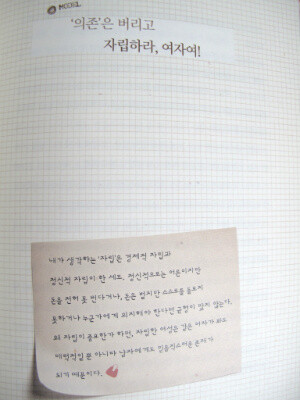 MODEL
'의존'은 버리고
자립하라, 여자여!
내가 생각하는 '자립'은 경제적 자립과
정신적 자립이 한 세트. 정신적으로는 어른이지만
돈을 전혀 못 번다거나, 돈은 벌지만 스스로를 돌보지
못하거나 누군가에게 의지해야 한다면 균형이 맞지 않는다.
왜 자립이 중요한가 하면, 자립한 여성은 같은 여자가 봐도
매력적일 뿐 아니라 남자에게도 믿음직스러운 존재가
되기 때문이다.